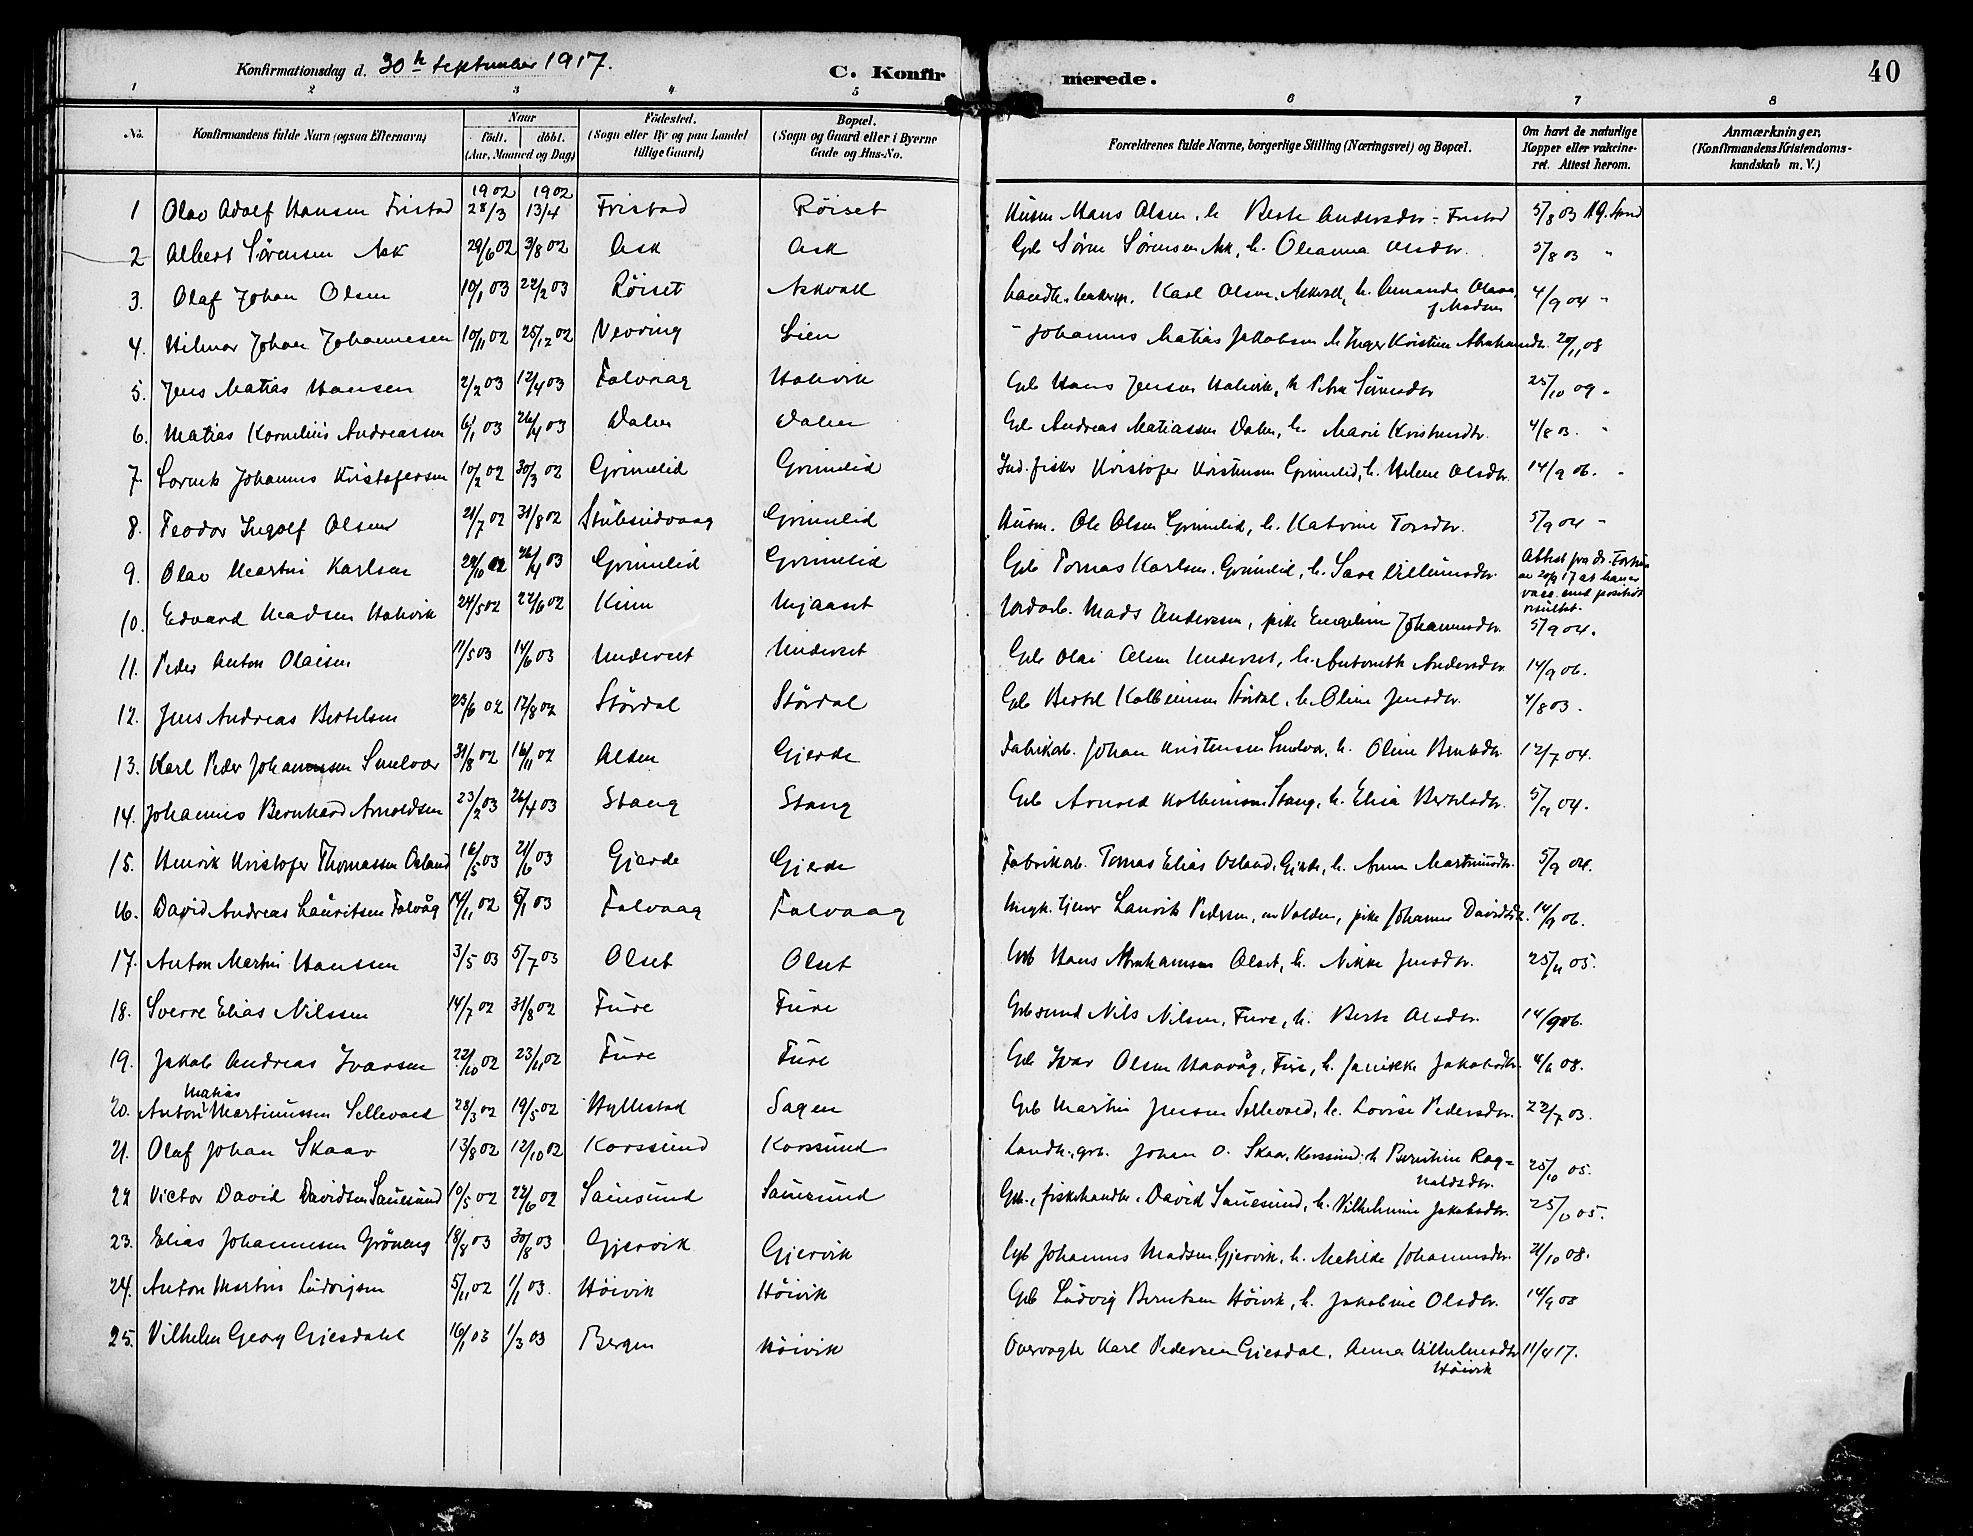 Konfirmationsdag d. 30te september 1917.
C. Konfirmerede.
40
1 2 3 4 5 6 7 8
No.
Konfirmandens fulde Navn (ogsaa Efternavn)
Naar
födt. döbt.
(Aar, Maaned og Dag)
Födested.
(Sogn eller By og paa Landet
tillige Gaard)
Bopæl.
(Sogn og Gaard eller i Byerne
Gade og Hus-No.
Forældrenes fulde Navne, borgerlige Stilling (Næringsvei) og Bopæl.
Om havt de naturlige
Kopper eller vakcine-
ret. Attest herom.
Anmærkninger.
(Konfirmandens Kristendoms-
kundskab m. V.)
1902 1902
1 Olav Adolf Hansen Fristad 28/3 13/4 Fristad Röiset Husm Hans Olsen, h. Berte Andersdtr - Fristad 5/8 03
2 Albert Sörensen Ask 29/6 02 3/8 02 Ask Ask Grb Sören Sörensen Ask, h. Oleanna Olsdtr. 5/8 03 "
3. Olaf Johan Olsen 10/1 03 22/2 03 Röiset Askvoll Landh. Karl Olsen, Askvoll, h. Amanda Olava 4/9 04 "
f. Madsen
4. Hilmar Johan Johannesen 10/11 02 25/12 02 Vevring Lien " Johannes Matias Jakobsen h Inger Kristine Abrahamdtr. 20/11 08
5. Jens Matias Hansen 2/2 03 12/4 03 Folvaag Holvik Grb Hans Jensen Holvik, h Petra Sörensdtr 25/10 09 "
6. Matias Kornelius Andreassen 6/1 03 26/4 03 Dalen Dalen Grb Andreas Matiassen Dalen, h. Marie Kristensdtr. 4/8 03. "
7. Lornts Johannes Kristofersen 10/2 02 30/3 02 Grimelid Grimelid Ind. fisker Kristofer Kristensen Grimelid, h. Helene Olsdtr. 14/9 06. "
8. Teodor Ingolf Olsen 21/7 02 31/8 02 Stubseidvaag Grimelid Husm. Ole Olsen Grimelid, h. Katrine Torsdtr. 5/9 04 "
9. Olav Martin Karlsen 29/10 02 26/4 03 Grimelid Grimelid Grb Tomas Karlsen. Grimelid, h. Sara Villumsdtr. Attest fra dr.
av 20/9 17 at han er
vacc. med positivt
resultat.
10. Edvard Madsen Holvik 24/5 02 22/6 02 Kinn Mjaaset Jordarb. Mads Andersen, pike Engeline Johannesdtr. 5/9 04.
11. Peder Anton Olaisen 11/5 03 14/6 03 Underset Underset Grb Olai Olsen Underset, h. Antonette Andersdtr. 14/9 06.
12. Jens Andreas Bertelsen 23/6 02 17/8 02 Stördal Stördal Grb Bertel Kolbeinsen Stördal, h. Oline Jensdtr. 4/8 03.
13. Karl Peder Johannesen Smelvær 31/8 02 16/11 02 Alden Gjerde Fabrikarb. Johan Kristensen Smelvær, h. Oline Berntsdtr. 12/7 04.
14. Johannes Bernhard Arnoldsen 23/2 03 26/4 03 Stang Stang Grb Arnold Kolbeinsen Stang, h. Elisa Bertelsdtr. 5/9 04.
15. Henrik Kristofer Thomassen Osland 16/5 03 21/6 03 Gjerde Gjerde Fabrikarb. Tomas Elias Osland, Gjerde, h. Anna Martinusdtr. 5/9 04.
16. David Andreas Lauritsen Folvåg 14/11 02 6/1 03 Folvaag Folvaag Ungk. tjener Laurits Pedersen, av Volden, pike Johanne Davidsdtr. 14/9 06.
17. Anton Martin Hanssen 3/5 03 5/7 03 Olset Olset Grb Hans Abrahamsen Olset, h. Nikka Jensdtr. 25/11 05.
18. Sverre Elias Nilssen 14/7 02 31/8 02 Fure Fure Grbsund Nils Nilsen, Fure, h. Berte Olsdtr. 14/9 06.
19. Jakob Andreas Ivarsen 22/10 02 23/11 02 Fure Fure Grb Ivar Olsen Haavåg, Fure, h. Jarikke Jakobsdtr. 4/6 08.
Matias
20. Anton Martinussen Sellevold 28/3 02 19/5 02 Hyllestad Sagen Grb Martin Jensen Sellevold, h. Lovise Pedersdtr. 22/7 03.
21. Olaf Johan Skaar 13/8 02 12/10 02 Korssund Korssund Landh., grb. Johan O. Skaar, Korssund, h Berntine Rag= 25/10 05.
naldsdtr.
22 Victor David Davidsen Sauesund 10/5 02 22/6 02 Sauesund Sauesund Grb., fiskehandler, David Sauesund, h. Vilhelmine Jakobsdtr. 25/10 05.
23. Elias Johannesen Gröneng 18/8 03 30/8 03 Gjervik Gjervik Grb Johannes Madsen, Gjervik, h. Matilde Johannesdtr. 21/10 08.
24. Anton Martin Ludvigsen 5/11 02 1/1 03. Höivik Höivik Grb Ludvig Berntsen Höivik, h. Jakobine Olsdtr. 14/9 08
25. Vilhelm Georg Gjesdahl 16/1 03 1/3 03 Bergen Höivik Overvogter Karl Pedersen Gjesdal. Anna Vilhelmsdtr 11/4 17.
Höivik